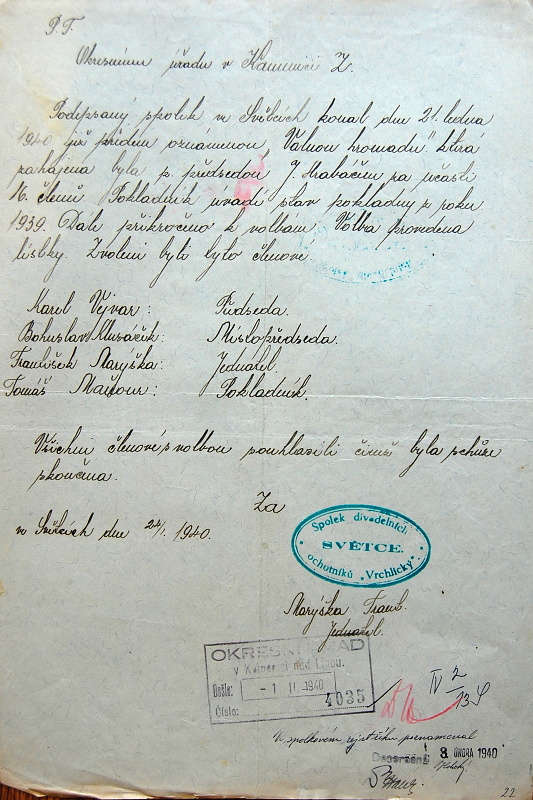 P.T.
Okresnímu úřadu v Kamenici L.
Podepsaný spolek ve Světcích konal dne 21. ledna
1940 již předem oznámenou "Valnou hromadu" která
zahájena byla p. předsedou J. Hrabáčem za účasti
16. členů. Pokladník uvádí stav pokladny z roku
1939. Dále přikročeno k volbam. Volba provedena
lístky. Zvoleni byli bylo členové
Karel Vejvar: Předseda.
Bohuslav Hlaváček: Místopředseda.
František Maryška: Jednatel.
Tomáš Maxour: Pokladník.
Všichni členové s volbou souhlasili čímž byla schůze
skončena.
Za
ve Světcích dne 24/1. 1940.
Spolek divadelních
SVĚTCE.
ochotníků „Vrchlický"
Maryška Frant.
Jednatel.
OKRESNÍ ÚŘAD
v Kamenici nad Lipou.
Došlo: - 1 II. 1940
Číslo: 4035
IV 2/13
Ve spolkovém rejstříku poznamenal
8 ÚNORA 1940
22